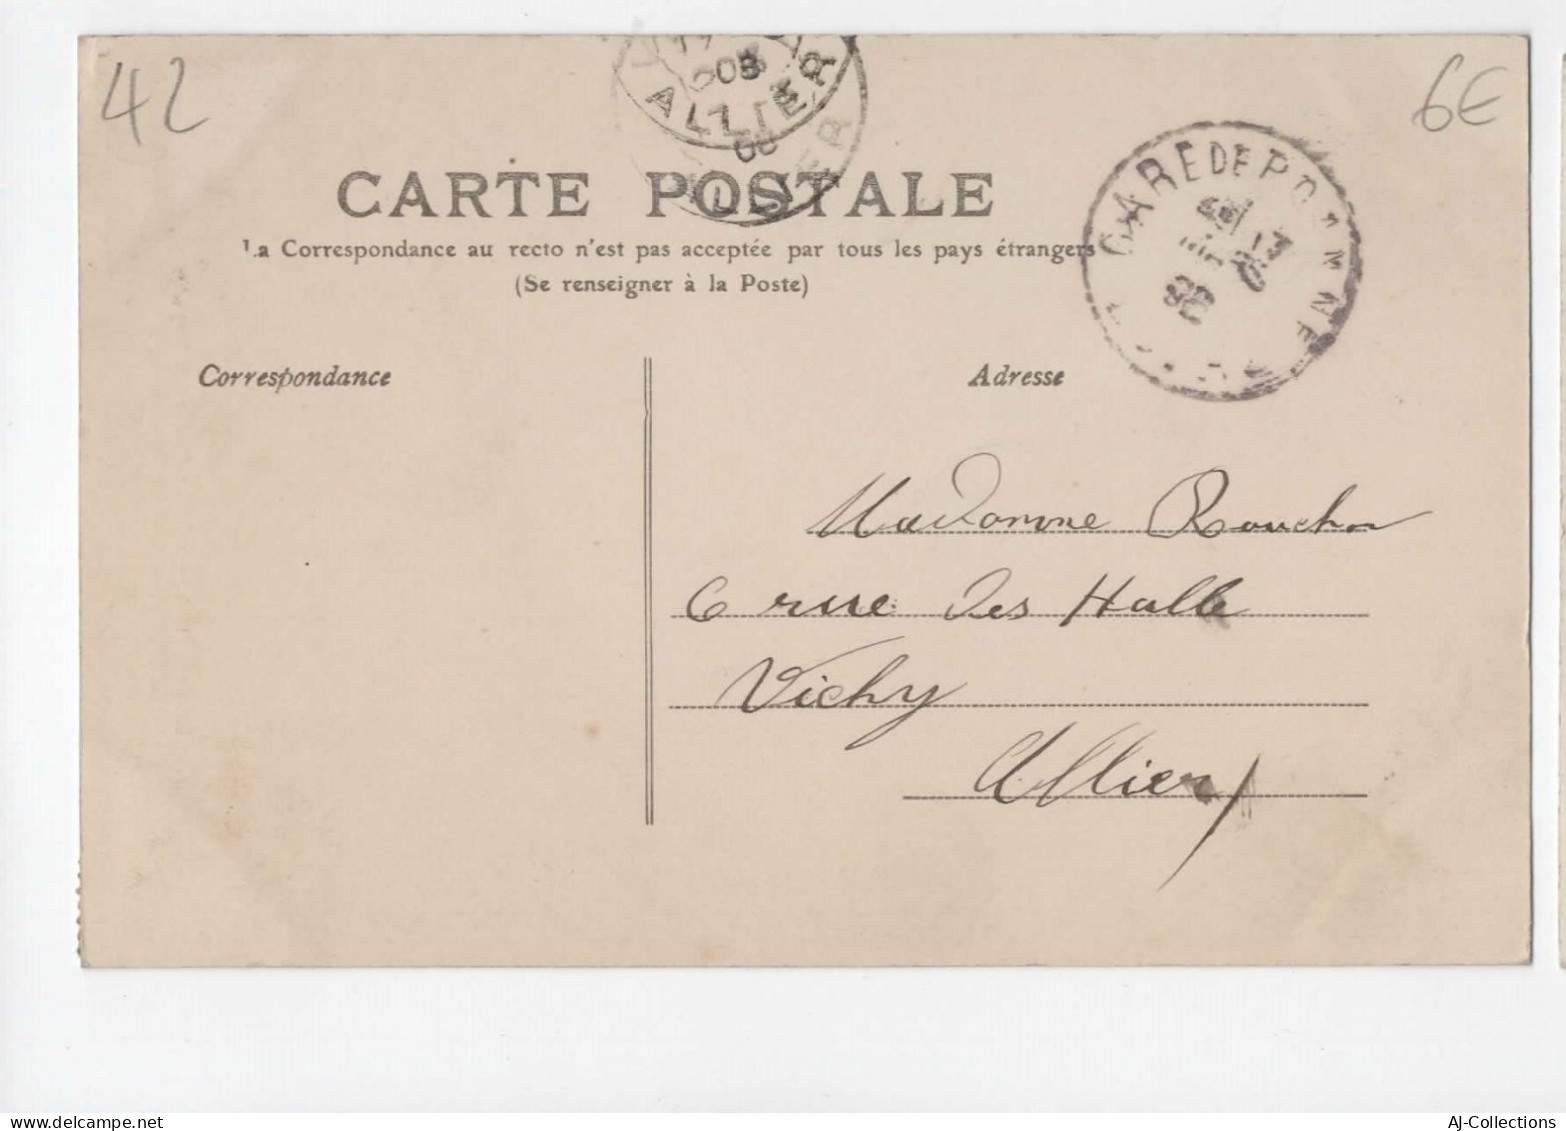 42
6E
08
ALLIER
GARE DE ROANNE
CARTE POSTALE
La Correspondance au recto n'est pas acceptée par tous les pays étrangers
(Se renseigner à la Poste)
Correspondance
Adresse
Madame Rouchon
6 rue des Halle
Vichy
Allier
AJ-Collections